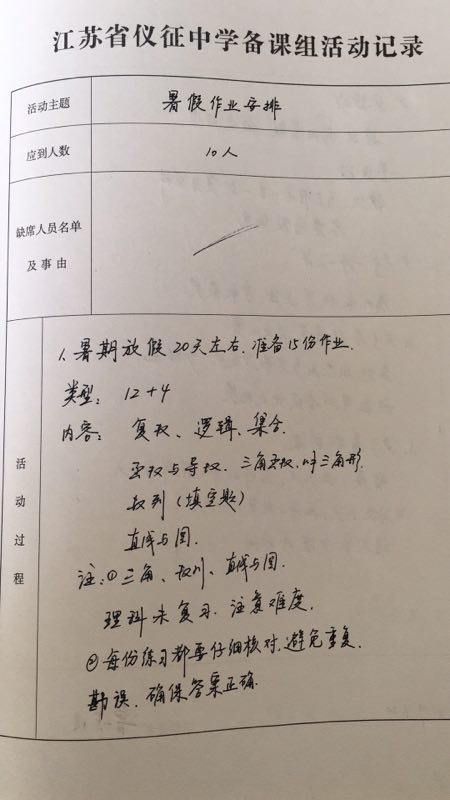 江苏省仪征中学备课组活动记录
活动主题 暑假作业安排
应到人数 10人
缺席人员名单
及事由
活动过程
1、暑期放假20天左右.准备15份作业.
类型: 12+4
内容: 复数、逻辑、集合.
函数与导数.三角函数,解三角形.
数列(填空题)
直线与圆.
注:①三角、数列、直线与圆.
理科未复习.注复难度.
②每份练习都要仔细核对,避免重复.
勘误.确保答案正确.